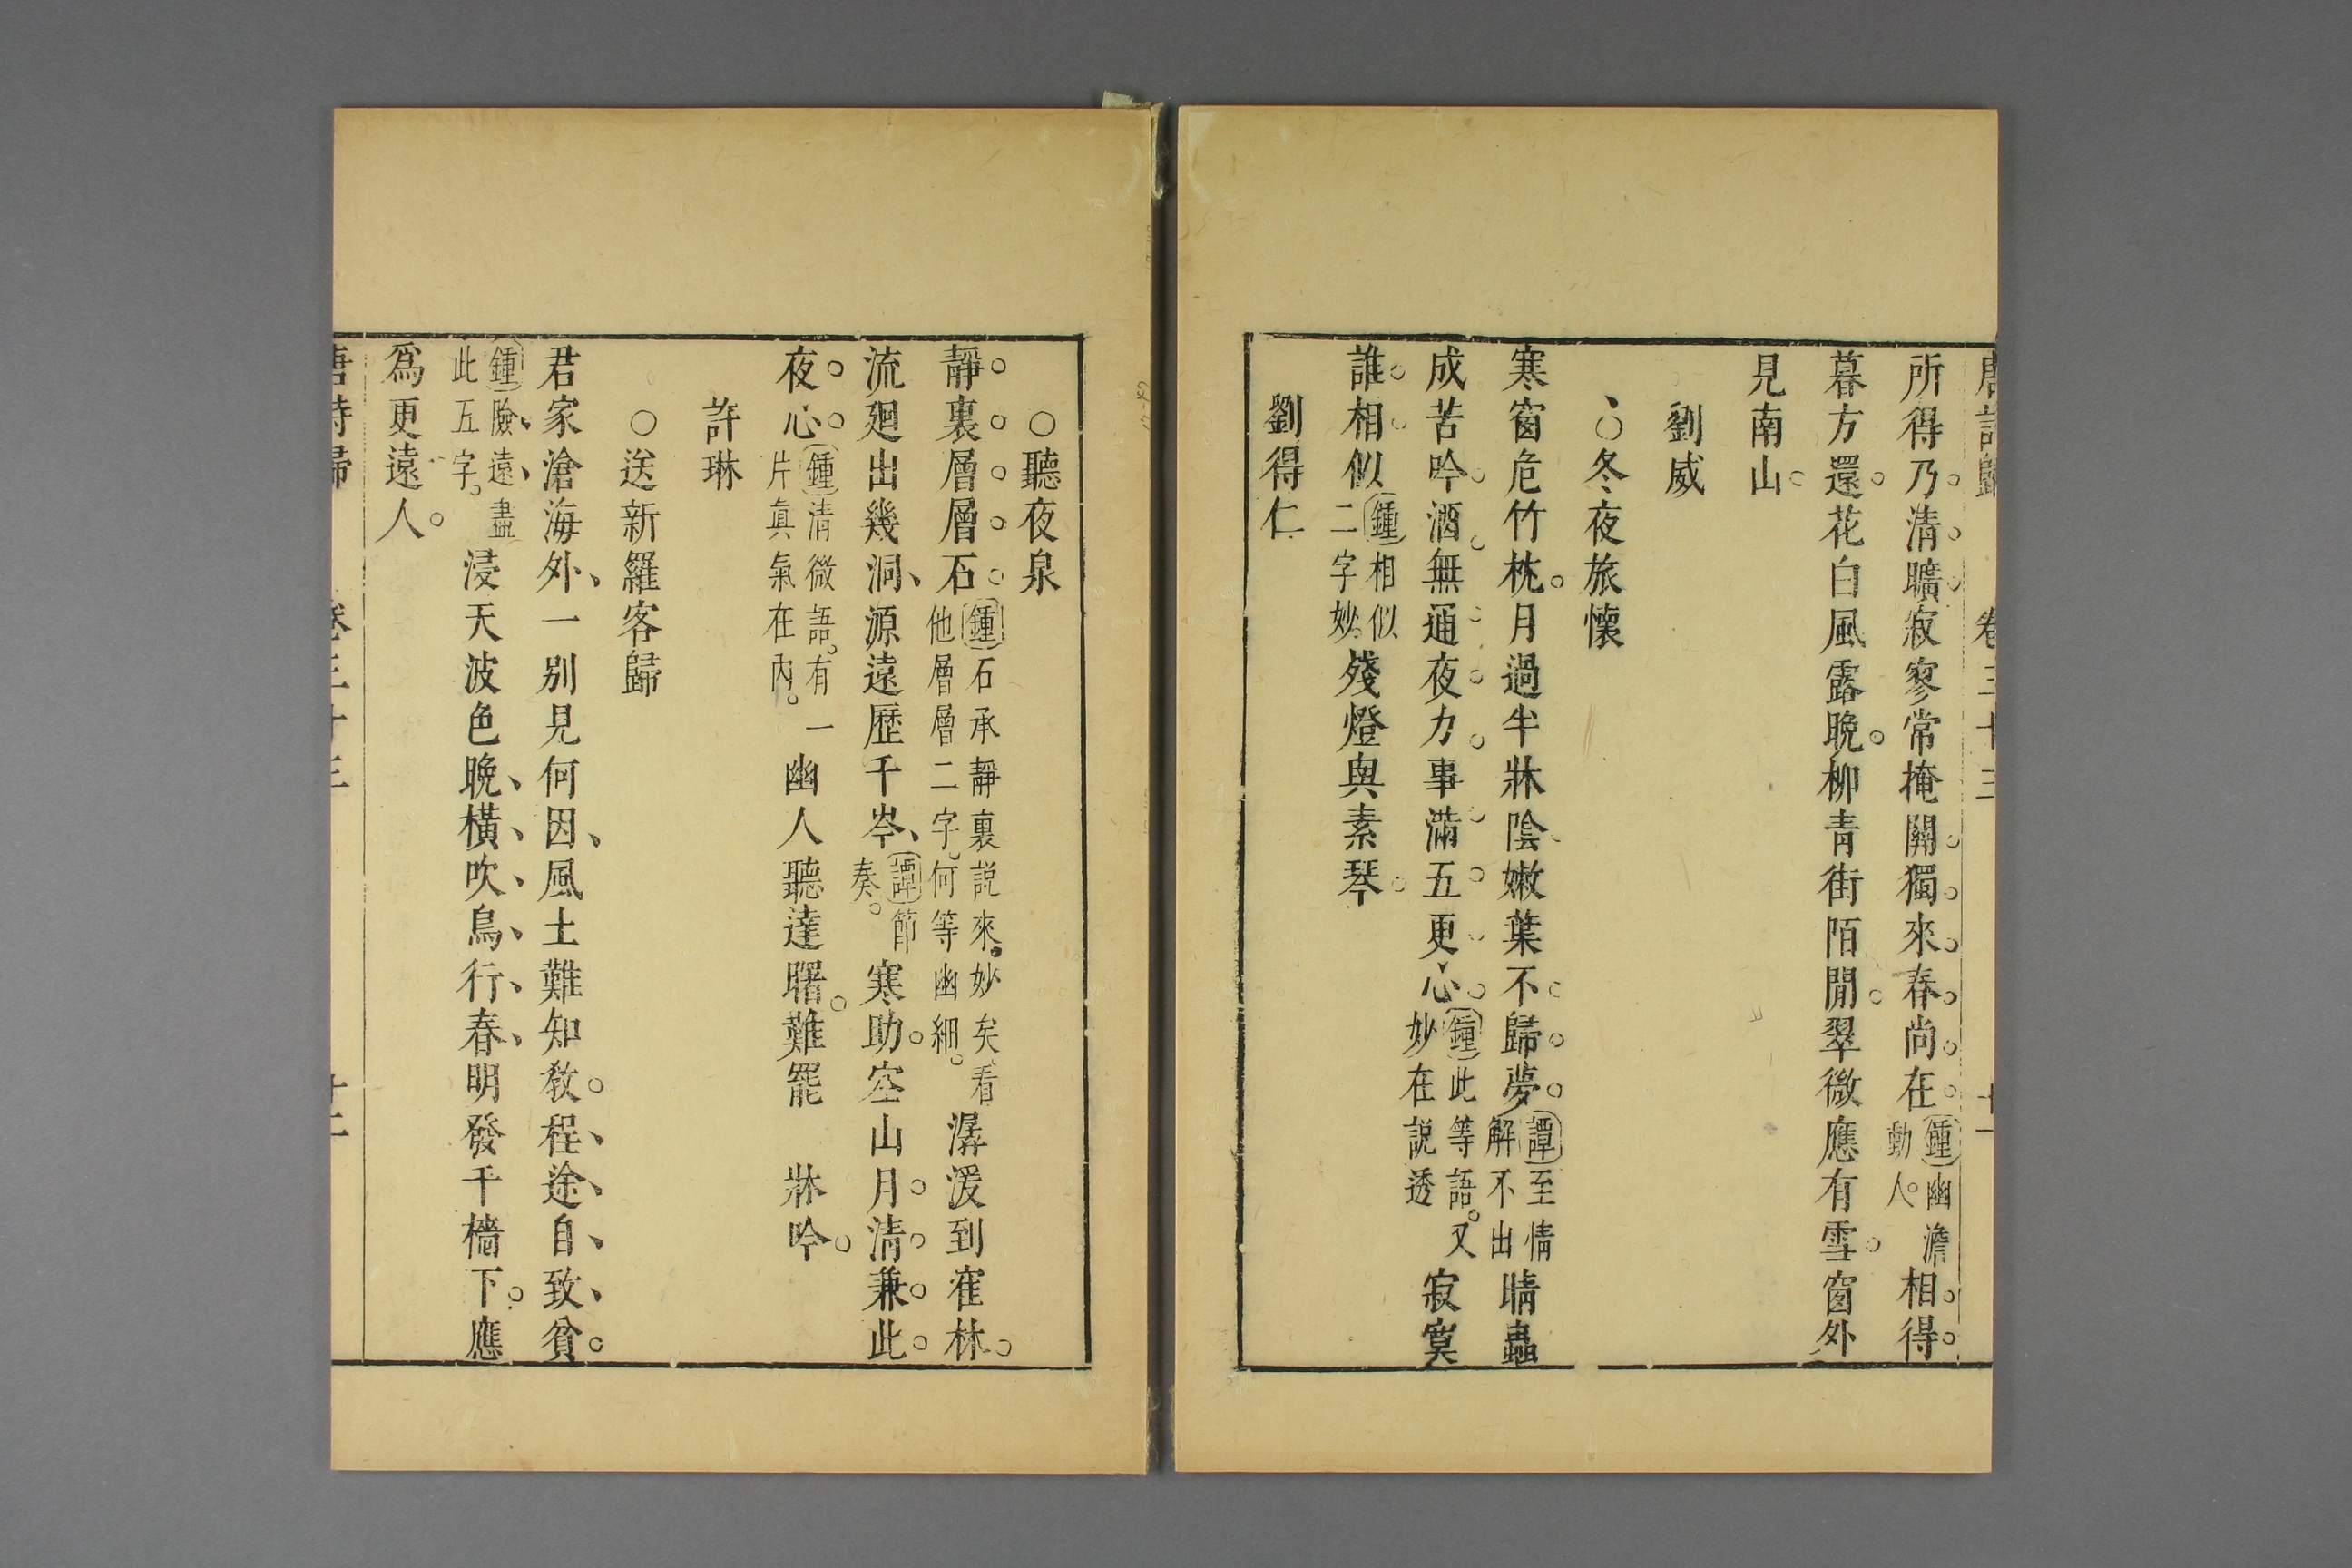 唐詩歸 卷三十三 十一
所得乃清曠寂寥常掩關獨來春尚在鍾幽澹動人相得
暮方還花白風露晚柳青街陌閒翠微應有雪窗外
見南山
劉威
○冬夜旅懷
寒窗危竹枕月過半牀陰嫩葉不歸夢譚至情解不出晴蟲
成苦吟酒無通夜力事滿五更心鍾此等語又妙在説透寂寞
誰相似鍾相似二字妙殘燈與素琴
劉得仁
○聽夜泉
靜裏層層石鍾石承靜裏説來妙矣看他層層二字何等幽細潺湲到隺林
流廻出幾洞源遠歷千岑譚節奏寒助空山月清兼此
夜心鍾清微語有一片眞氣在內幽人聽達曙難罷牀吟
許琳
○送新羅客歸
君家滄海外一別見何因風土難知教程途自致貧
鍾險遠盡此五字浸天波色晚橫吹鳥行春明發千檣下應
爲更遠人
唐詩歸 卷三十三 十二